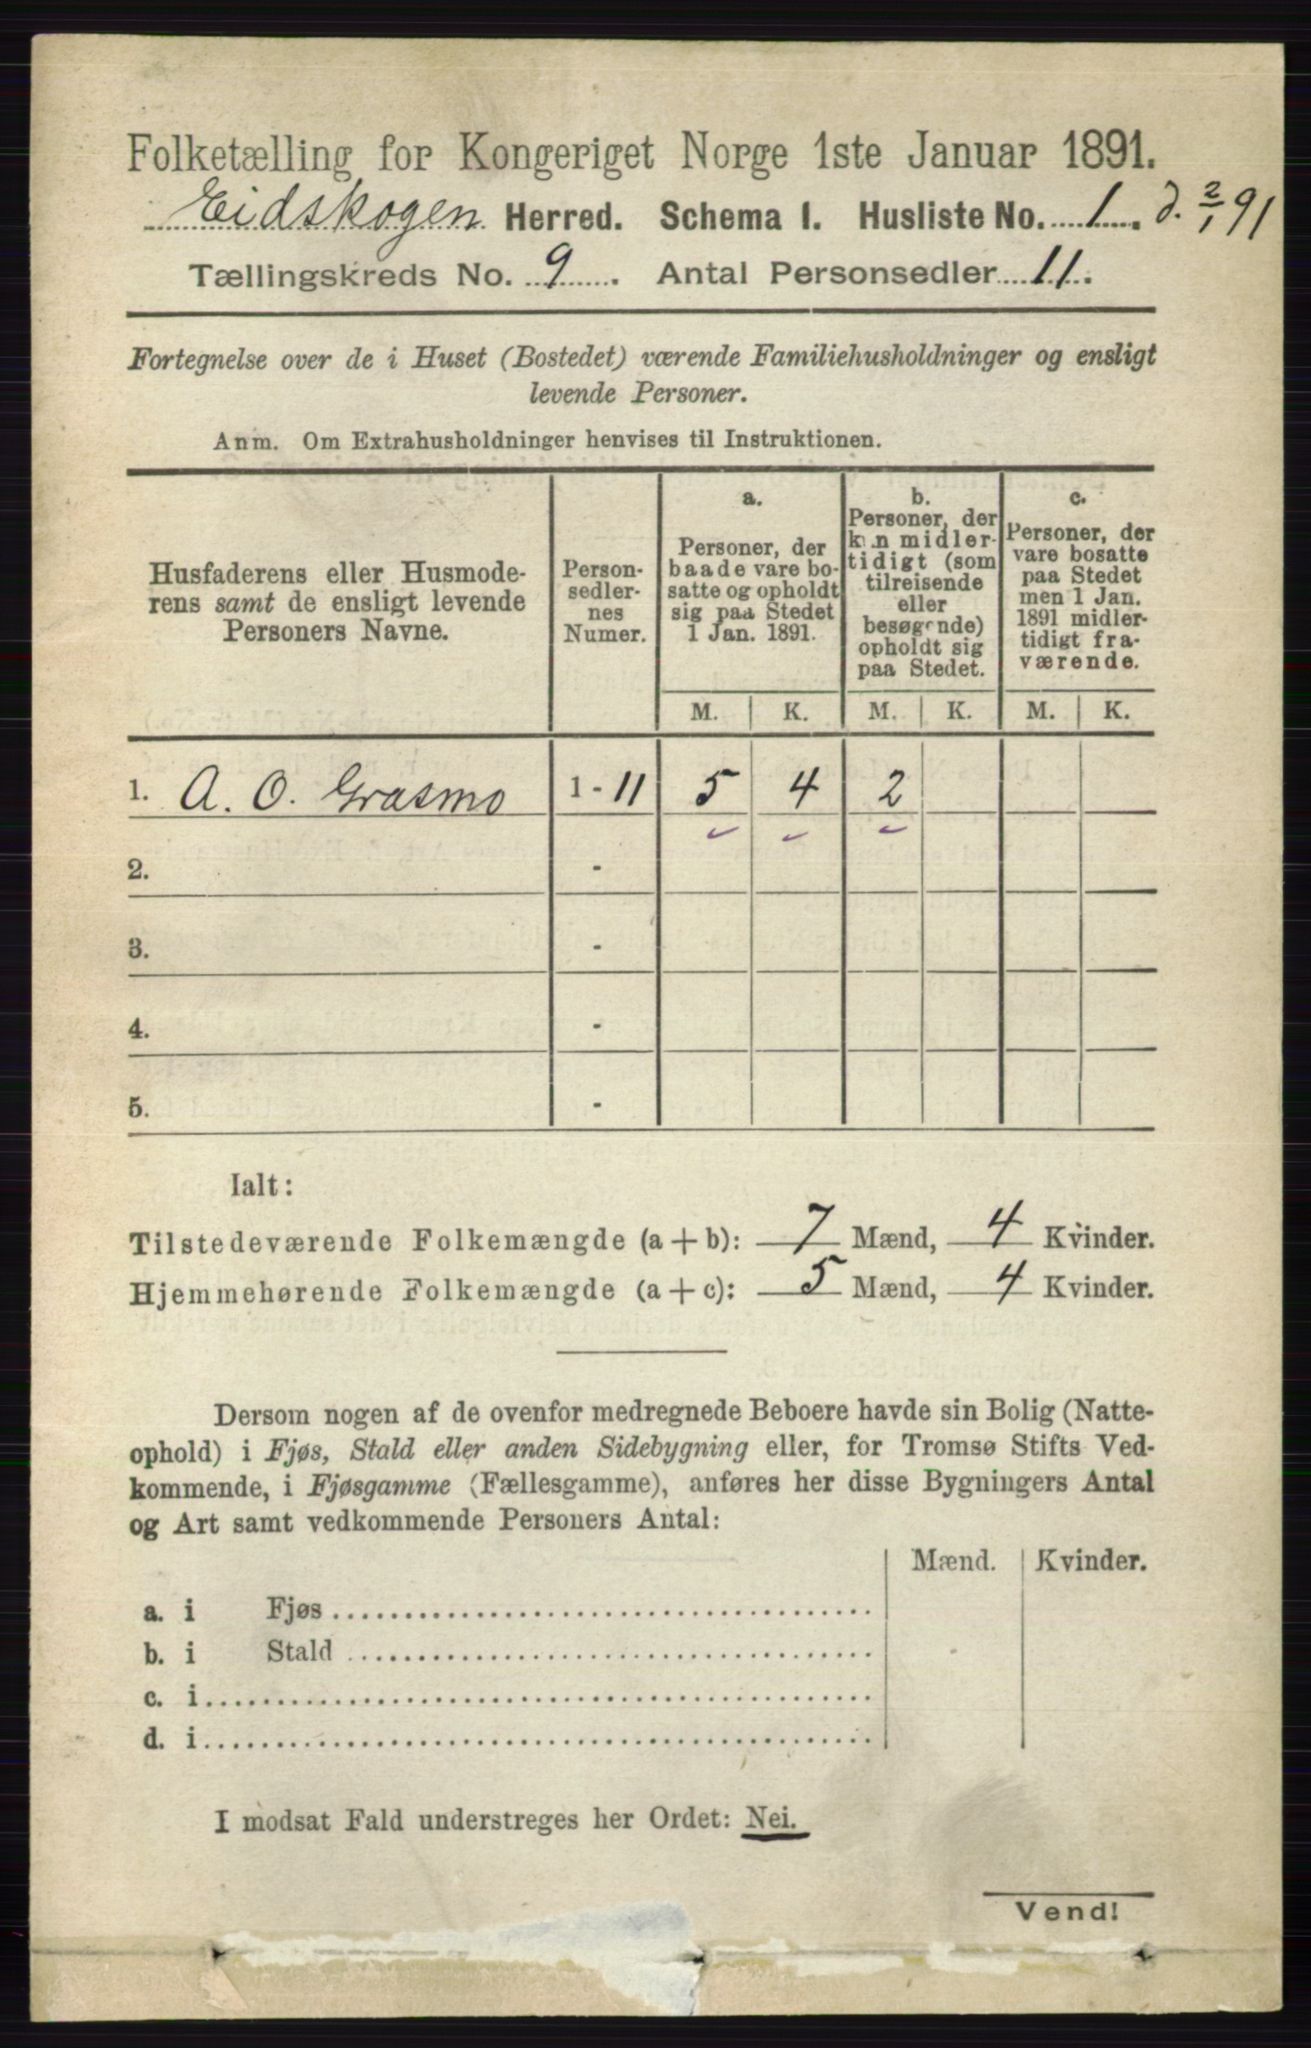 Folketælling for Kongeriget Norge 1ste Januar 1891.
Eidskogen Herred. Schema I. Husliste No. 1. d. 2/1 91
Tællingskreds No. 9. Antal Personsedler 11.
Fortegnelse over de i Huset (Bostedet) værende Familiehusholdninger og ensligt
levende Personer.
Anm. Om Extrahusholdninger henvises til Instruktionen.
Husfaderens eller Husmode-
rens samt de ensligt levende
Personers Navne.
Person-
sedler-
nes
Numer.
a.
Personer, der
baade vare bo-
satte og opholdt
sig paa Stedet
1 Jan. 1891.
b.
Personer, der
kun midler-
tidigt (som
tilreisende
eller
besøgende)
opholdt sig
paa Stedet.
c.
Personer, der
vare bosatte
paa Stedet
men 1 Jan.
1891 midler-
tidigt fra-
værende.
M. K. M. K. M. K.
1. A. O. Grasmo 1 - 11 5 4 2
2. -
3. -
4. -
5. -
Ialt:
Tilstedeværende Folkemængde (a + b): 7 Mænd, 4 Kvinder.
Hjemmehørende Folkemængde (a + c): 5 Mænd, 4 Kvinder.
Dersom nogen af de ovenfor medregnede Beboere havde sin Bolig (Natte-
ophold) i Fjøs, Stald eller anden Sidebygning eller, for Tromsø Stifts Ved-
kommende, i Fjøsgamme (Fællesgamme), anføres her disse Bygningers Antal
og Art samt vedkommende Personers Antal:
Mænd. Kvinder.
a. i Fjøs
b. i Stald
c. i
d. i
I modsat Fald understreges her Ordet: Nei.
Vend!